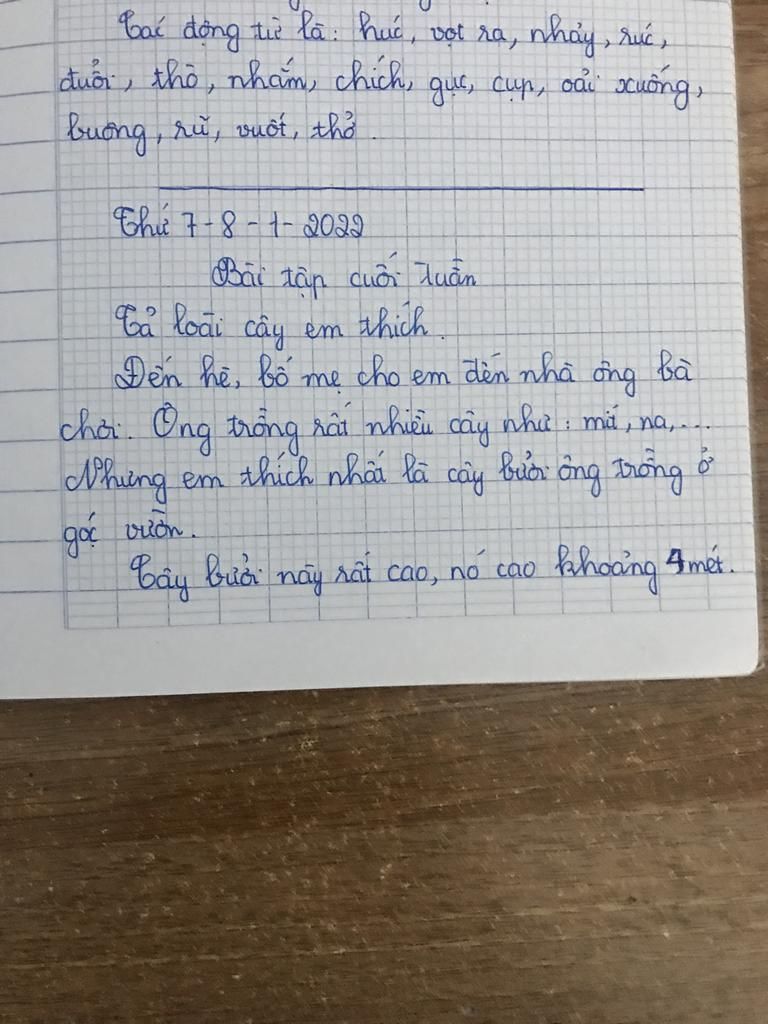 Các động từ là: húc, vọt ra, nhảy, rúc,
đuổi, thò, nhắm, chích, gục, cụp, oải xuống,
buông, rũ, vuốt, thở.
Thứ 7-8-1-2022
Bài tập cuối tuần
Tả loài cây em thích.
Đến hè, bố mẹ cho em đến nhà ông bà
chơi. Ông trồng rất nhiều cây như: mít, na,...
Nhưng em thích nhất là cây bưởi ông trồng ở
góc vườn.
Cây bưởi này rất cao, nó cao khoảng 4 mét.